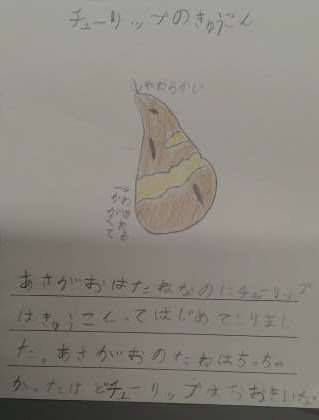 チューリップのきゅうこん
やわらかい
あさがおはたねなのにチューリップ
はきゅうこんってはじめてしりまし
た。あさがおのたねはちっちゃ
かったけどチューリップはおおきいな